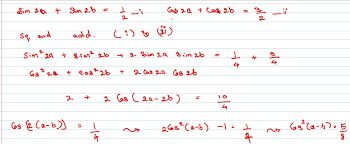 Sin 2a + Sin 2b = 1/2 —i Cos 2a + Cos 2b = 3/2 —ii
Sq and add. (i) & (ii)
Sin² 2a + Sin² 2b + 2 Sin 2a Sin 2b = 1/4 + 9/4
Cos² 2a + Cos² 2b + 2 Cos 2a Cos 2b
2 + 2 Cos (2a-2b) = 10/4
Cos {2(a-b)} = 1/4 ⇝ 2Cos²(a-b) - 1 = 1/4 ⇝ Cos²(a-b) = 5/8